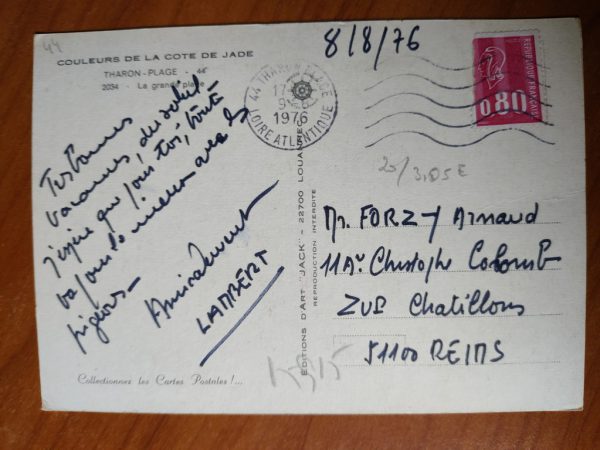 44
COULEURS DE LA COTE DE JADE
THARON-PLAGE - 44
2034 - La grande plage
8/8/76
44 THARON PLAGE
17
9-8
1976
LOIRE ATLANTIQUE
REPUBLIQUE FRANÇAISE
0,80
Tres bonnes
vacances, du soleil
J'espère que pour toi, tout
va pour le mieux avec les
pigeons
Amicalement
LAMBERT
Collectionnez les Cartes Postales !...
EDITIONS D'ART "JACK" - 22700 LOUANNEC
REPRODUCTION INTERDITE
Mr. FORZY Arnaud
11 Av Christophe Colomb
ZUP Chatillons
51100 REIMS